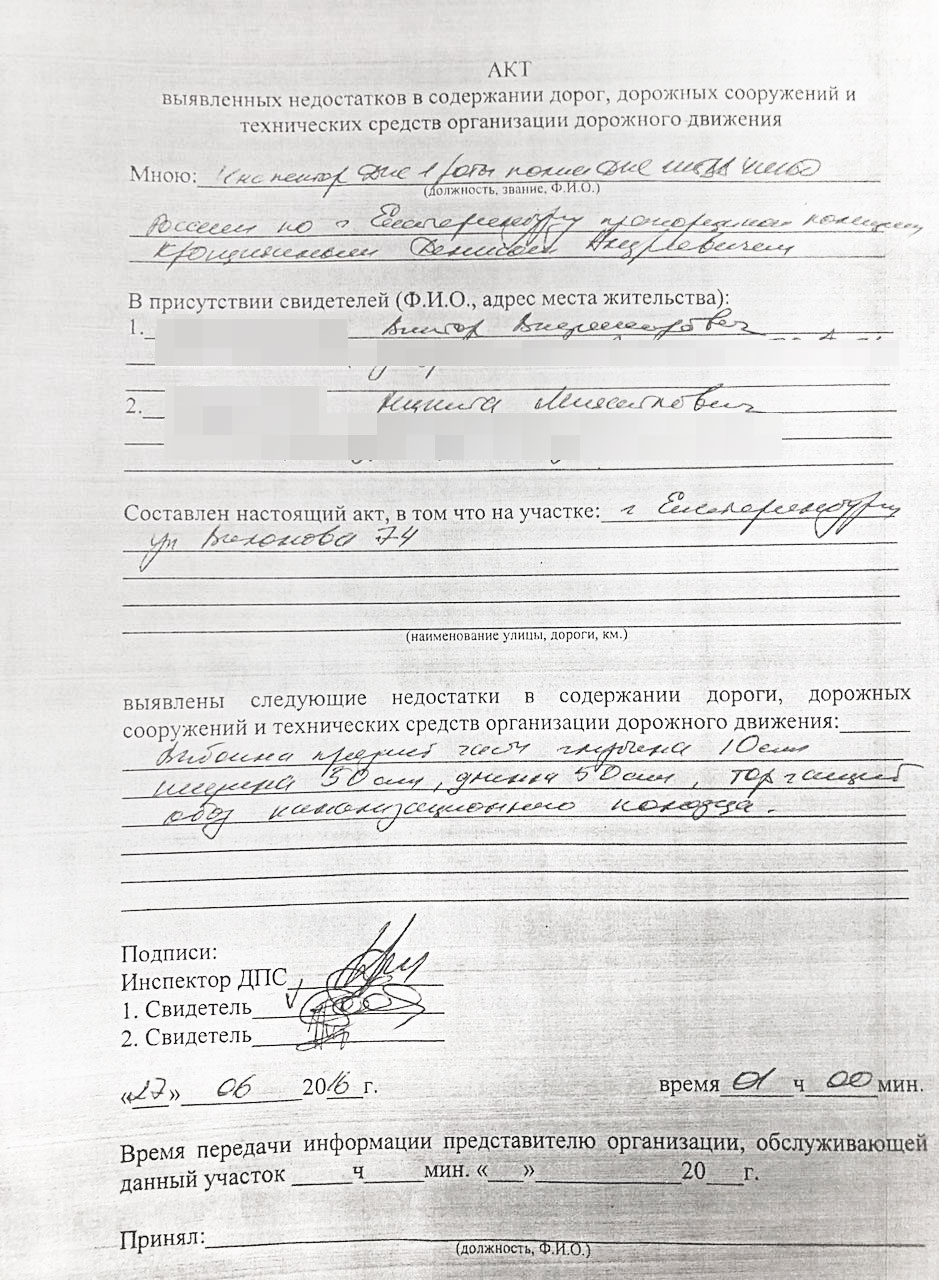 АКТ
выявленных недостатков в содержании дорог, дорожных сооружений и
технических средств организации дорожного движения
Мною: Инспектор ДПС 1 роты полка ДПС ГИБДД УМВД
(должность, звание, Ф.И.О.)
России по г Екатеринбургу прапорщиком полиции
Денисом Андреевичем
В присутствии свидетелей (Ф.И.О., адрес места жительства):
1. Виктор Владимирович
2. Никита Михайлович
Составлен настоящий акт, в том что на участке: г Екатеринбург
ул Вилонова 74
(наименование улицы, дороги, км.)
выявлены следующие недостатки в содержании дороги, дорожных
сооружений и технических средств организации дорожного движения:
Выбоина проезжей части глубина 10см
ширина 50см, длинна 50см, торчащий
обод канализационного колодца.
Подписи:
Инспектор ДПС
1. Свидетель
2. Свидетель
«27» 06 2016 г. время 01 ч 00 мин.
Время передачи информации представителю организации, обслуживающей
данный участок ч мин. « » 20 г.
Принял:
(должность, Ф.И.О.)